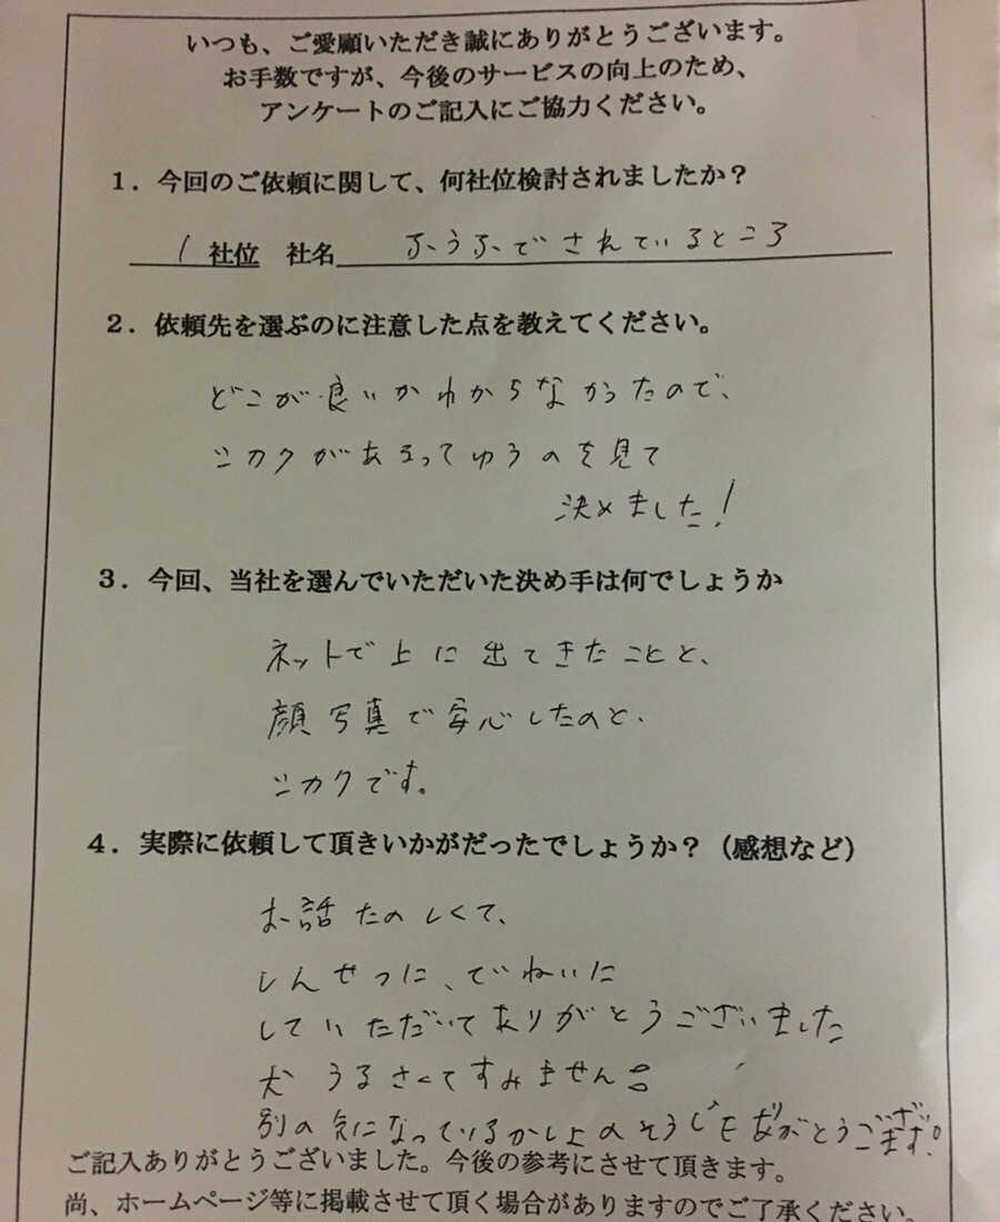 いつも、ご愛願いただき誠にありがとうございます。
お手数ですが、今後のサービスの向上のため、
アンケートのご記入にご協力ください。
1．今回のご依頼に関して、何社位検討されましたか？
1 社位 社名 ふうふでされているところ
2．依頼先を選ぶのに注意した点を教えてください。
どこが良いかわからなかったので、
シカクがあるってゆうのを見て
決めました！
3．今回、当社を選んでいただいた決め手は何でしょうか
ネットで上に出てきたことと、
顔写真で安心したのと、
シカクです。
4．実際に依頼して頂きいかがだったでしょうか？（感想など）
お話たのしくて、
しんせつに、でねいに
していただいてありがとうございました
犬うるさくてすみません
別の気になっているかしょのそうじもありがとうございます。
ご記入ありがとうございました。今後の参考にさせて頂きます。
尚、ホームページ等に掲載させて頂く場合がありますのでご了承ください。